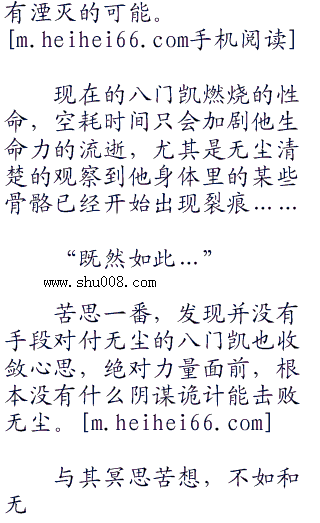 有湮灭的可能。
[m.heihei66.com手机阅读]
现在的八门凯燃烧的性
命，空耗时间只会加剧他生
命力的流逝，尤其是无尘清
楚的观察到他身体里的某些
骨骼已经开始出现裂痕……
“既然如此…”
www.shu008.com
苦思一番，发现并没有
手段对付无尘的八门凯也收
敛心思，绝对力量面前，根
本没有什么阴谋诡计能击败
无尘。[m.heihei66.com]
与其冥思苦想，不如和
无